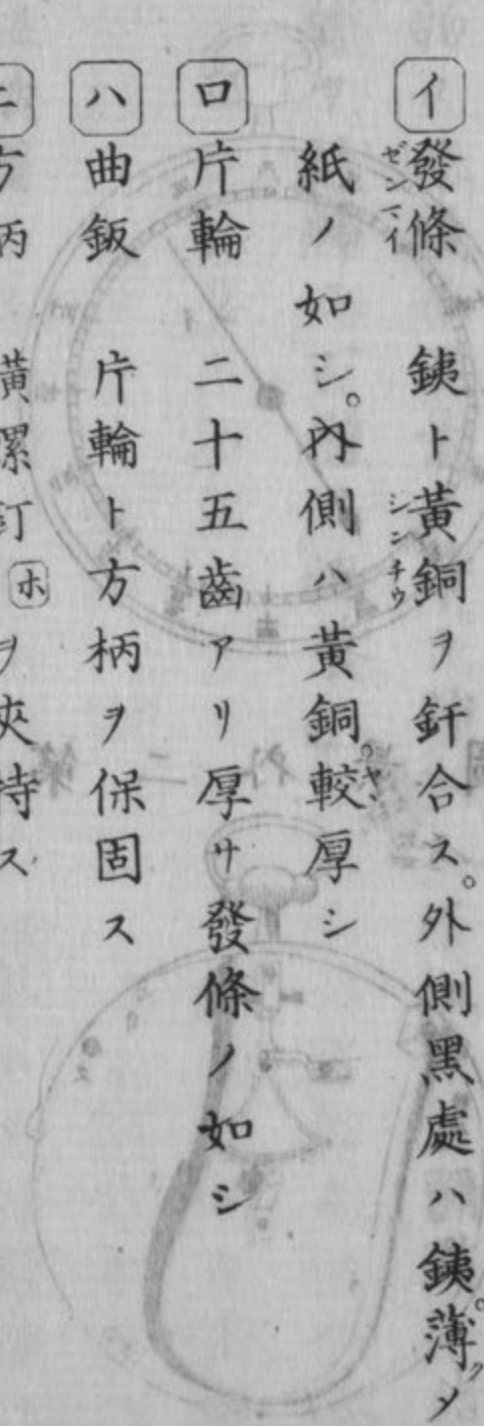 イ 發條 銕ト黃銅ヲ釬合ス。外側黑處ハ銕。薄クメ
紙ノ如シ。內側ハ黃銅。較厚シ
ロ 片輪 二十五齒アリ厚サ發條ノ如シ
ハ 曲鈑 片輪ト方柄ヲ保固ス
ニ 方柄 黃螺釘ホヲ夾持ス